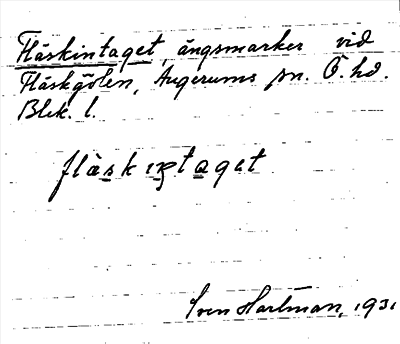 Fläskintaget, ängsmarker vid
Fläskgölen, Augerums sn. Ö. hd.
Blek. l.
flàskıntaget
Sven Hartman, 1931